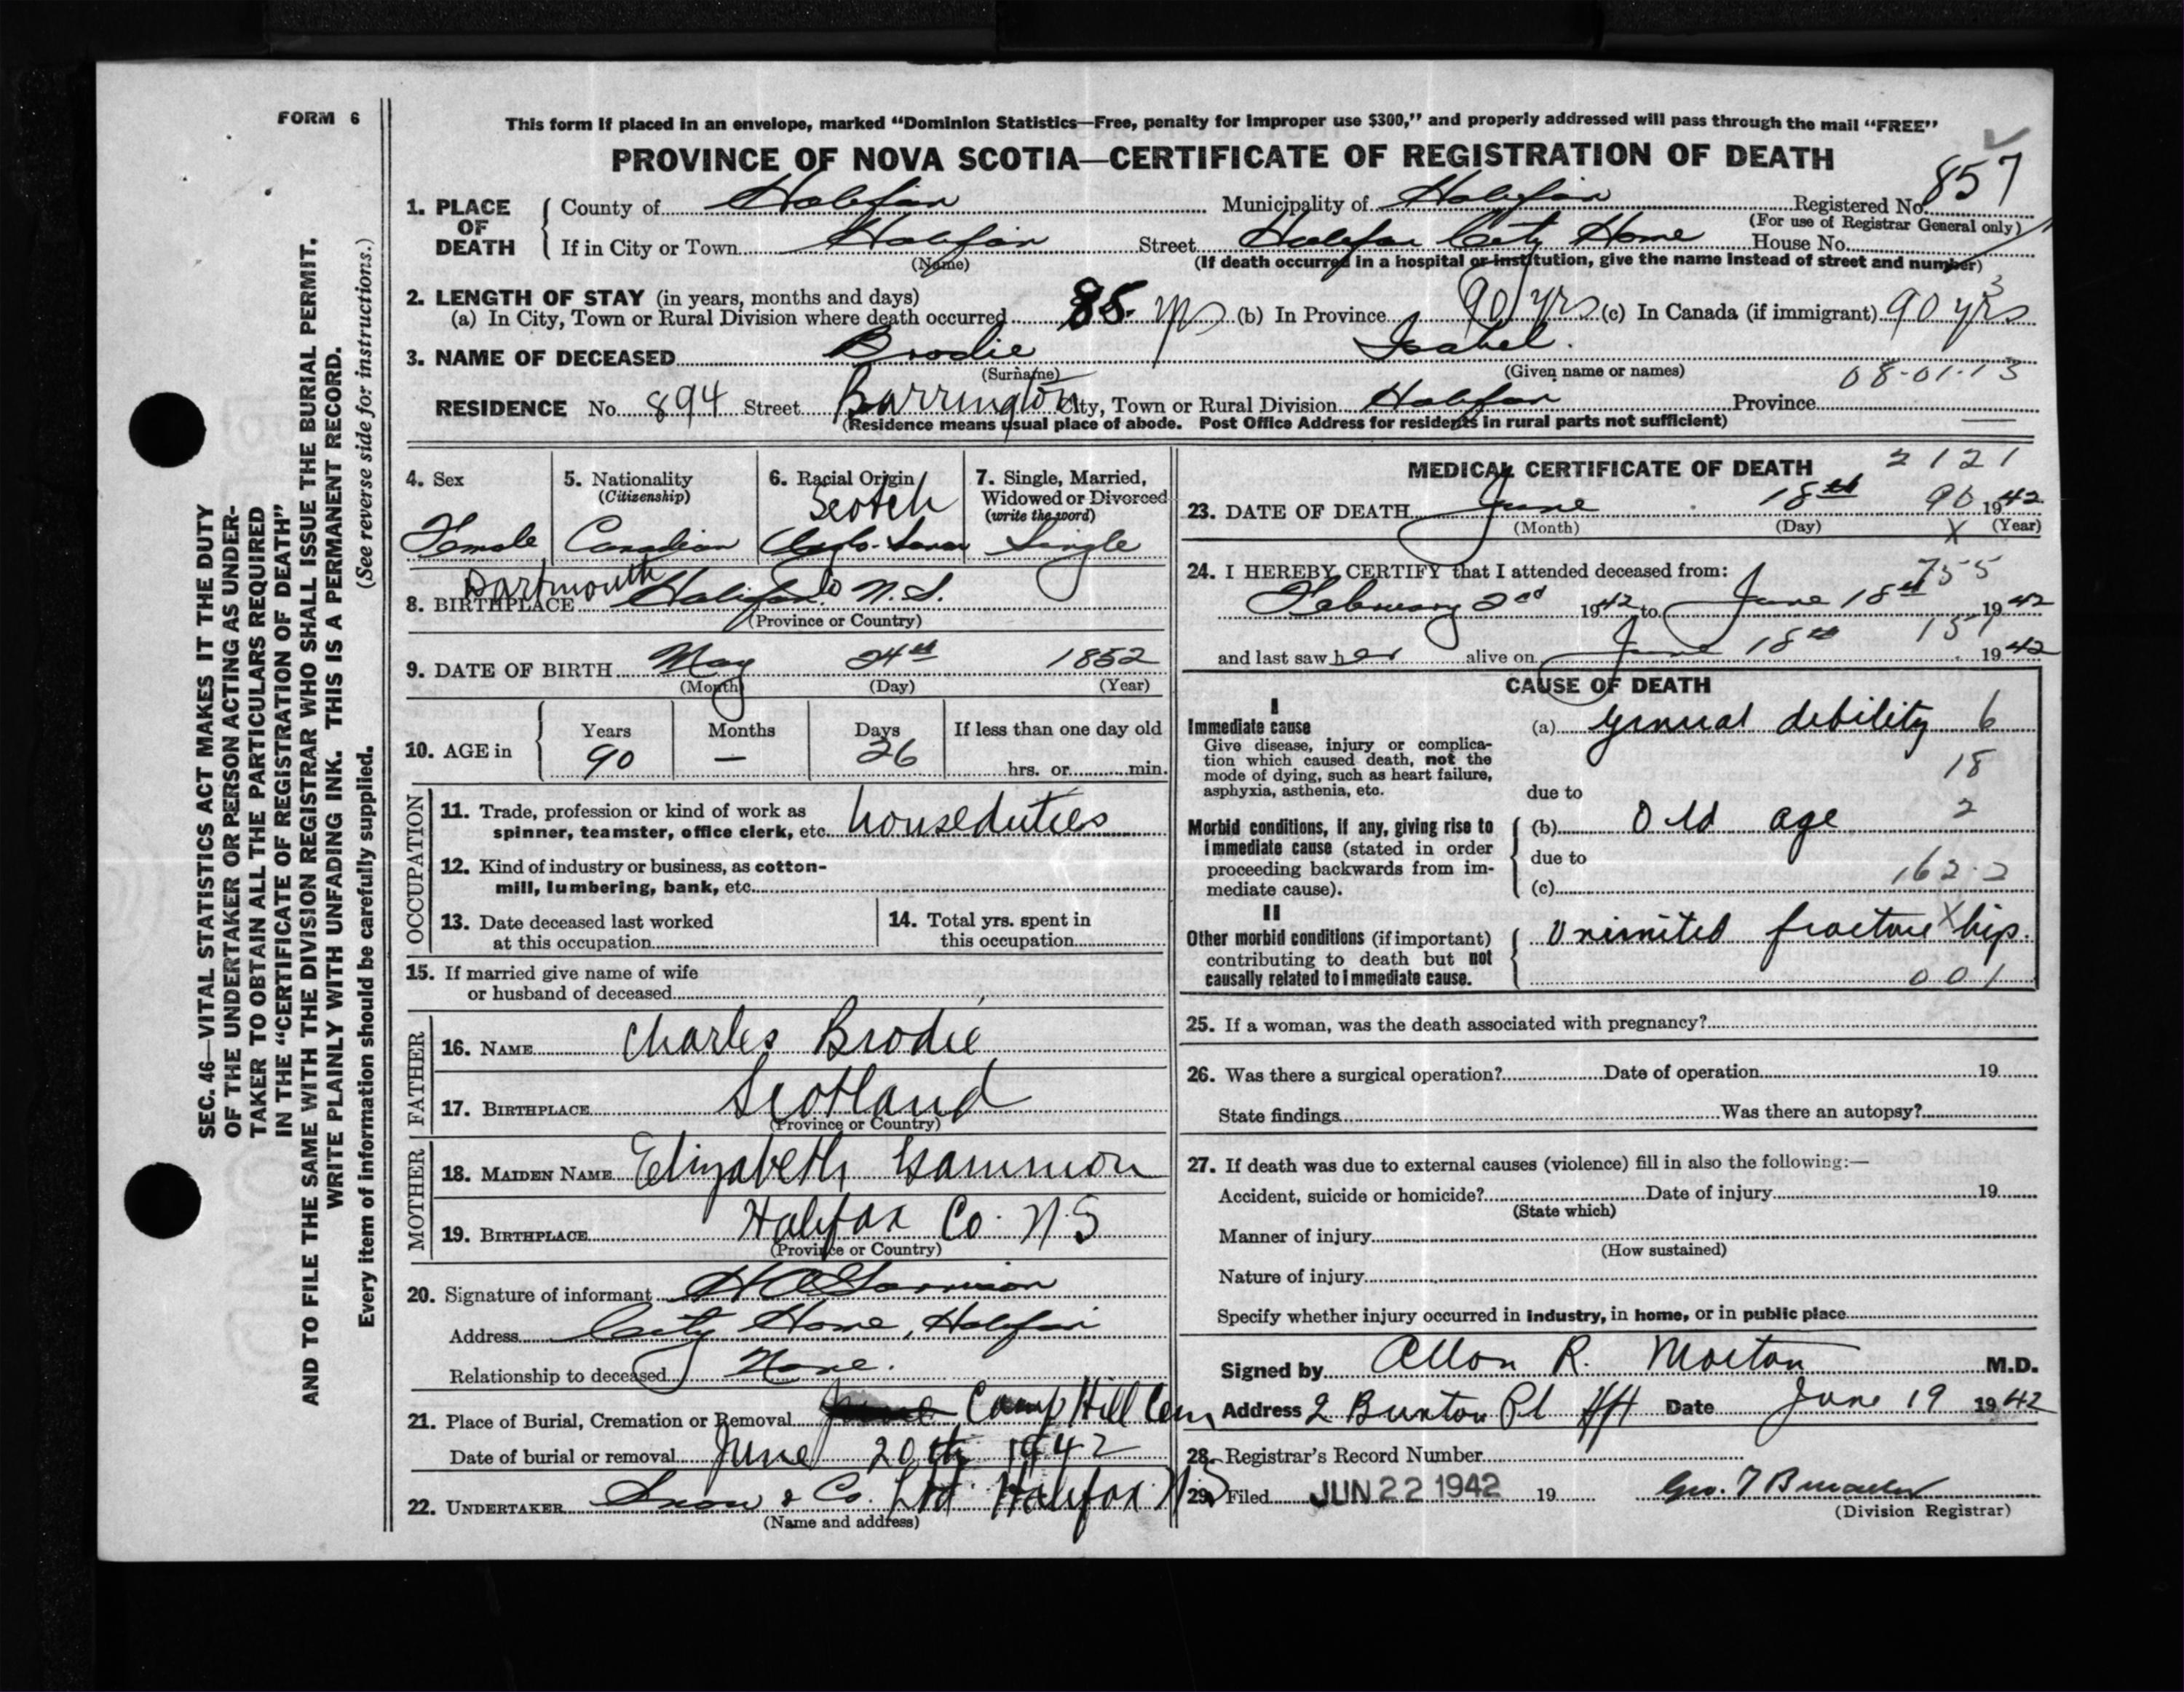 FORM 6
This form if placed in an envelope, marked “Dominion Statistics—Free, penalty for improper use $300,” and properly addressed will pass through the mail “FREE”
PROVINCE OF NOVA SCOTIA—CERTIFICATE OF REGISTRATION OF DEATH
857
1. PLACE OF DEATH County of Halifax Municipality of Halifax Registered No.
(For use of Registrar General only)
If in City or Town Halifax Street Halifax City Home House No.
(Name) (If death occurred in a hospital or institution, give the name instead of street and number)
3
2. LENGTH OF STAY (in years, months and days)
(a) In City, Town or Rural Division where death occurred 85 yrs (b) In Province 90 yrs (c) In Canada (if immigrant) 90 yrs
3. NAME OF DECEASED Brodie Isabel.
(Surname) (Given name or names) 08-01-13
RESIDENCE No. 894 Street Barrington City, Town or Rural Division Halifax Province
(Residence means usual place of abode. Post Office Address for residents in rural parts not sufficient)
4. Sex 5. Nationality (Citizenship) 6. Racial Origin 7. Single, Married, Widowed or Divorced (write the word)
Scotch
Female Canadian Anglo-Saxon Single
Dartmouth
8. BIRTHPLACE Halifax Co N.S.
(Province or Country)
9. DATE OF BIRTH May 24th 1852
(Month) (Day) (Year)
10. AGE in Years Months Days If less than one day old
90 — 26 hrs. or min.
OCCUPATION
11. Trade, profession or kind of work as spinner, teamster, office clerk, etc. houseduties
12. Kind of industry or business, as cotton-mill, lumbering, bank, etc.
13. Date deceased last worked at this occupation
14. Total yrs. spent in this occupation
15. If married give name of wife or husband of deceased
FATHER
16. NAME Charles Brodie
17. BIRTHPLACE Scotland
(Province or Country)
MOTHER
18. MAIDEN NAME Elizabeth Gammon
19. BIRTHPLACE Halifax Co. N.S
(Province or Country)
20. Signature of informant
Address City Home, Halifax
Relationship to deceased None.
21. Place of Burial, Cremation or Removal Camp Hill Cem
Date of burial or removal June 20th 1942
22. UNDERTAKER Snow & Co. Ltd Halifax N.S
(Name and address)
MEDICAL CERTIFICATE OF DEATH 2121
23. DATE OF DEATH June 18th 90 1942
(Month) (Day) X (Year)
24. I HEREBY CERTIFY that I attended deceased from: 755
February 2nd 1942 to June 18th 1942
and last saw her alive on June 18th 1942
CAUSE OF DEATH
I
Immediate cause (a) general debility 6
Give disease, injury or complication which caused death, not the mode of dying, such as heart failure, asphyxia, asthenia, etc.
18
due to
Morbid conditions, if any, giving rise to immediate cause (stated in order proceeding backwards from immediate cause).
(b) Old age 2
due to
(c) 162.2
II
Other morbid conditions (if important) contributing to death but not causally related to immediate cause.
Ununited fracture X hip.
001
25. If a woman, was the death associated with pregnancy?
26. Was there a surgical operation? Date of operation 19
State findings Was there an autopsy?
27. If death was due to external causes (violence) fill in also the following:—
Accident, suicide or homicide? Date of injury 19
(State which)
Manner of injury
(How sustained)
Nature of injury
Specify whether injury occurred in industry, in home, or in public place
Signed by Allan R. Morton M.D.
Address 2 Buxton Pl Hfx Date June 19 1942
28. Registrar’s Record Number
29. Filed JUN 22 1942 19
(Division Registrar)
SEC. 46—VITAL STATISTICS ACT MAKES IT THE DUTY
OF THE UNDERTAKER OR PERSON ACTING AS UNDER-
TAKER TO OBTAIN ALL THE PARTICULARS REQUIRED
IN THE “CERTIFICATE OF REGISTRATION OF DEATH”
AND TO FILE THE SAME WITH THE DIVISION REGISTRAR WHO SHALL ISSUE THE BURIAL PERMIT.
WRITE PLAINLY WITH UNFADING INK. THIS IS A PERMANENT RECORD.
Every item of information should be carefully supplied. (See reverse side for instructions.)